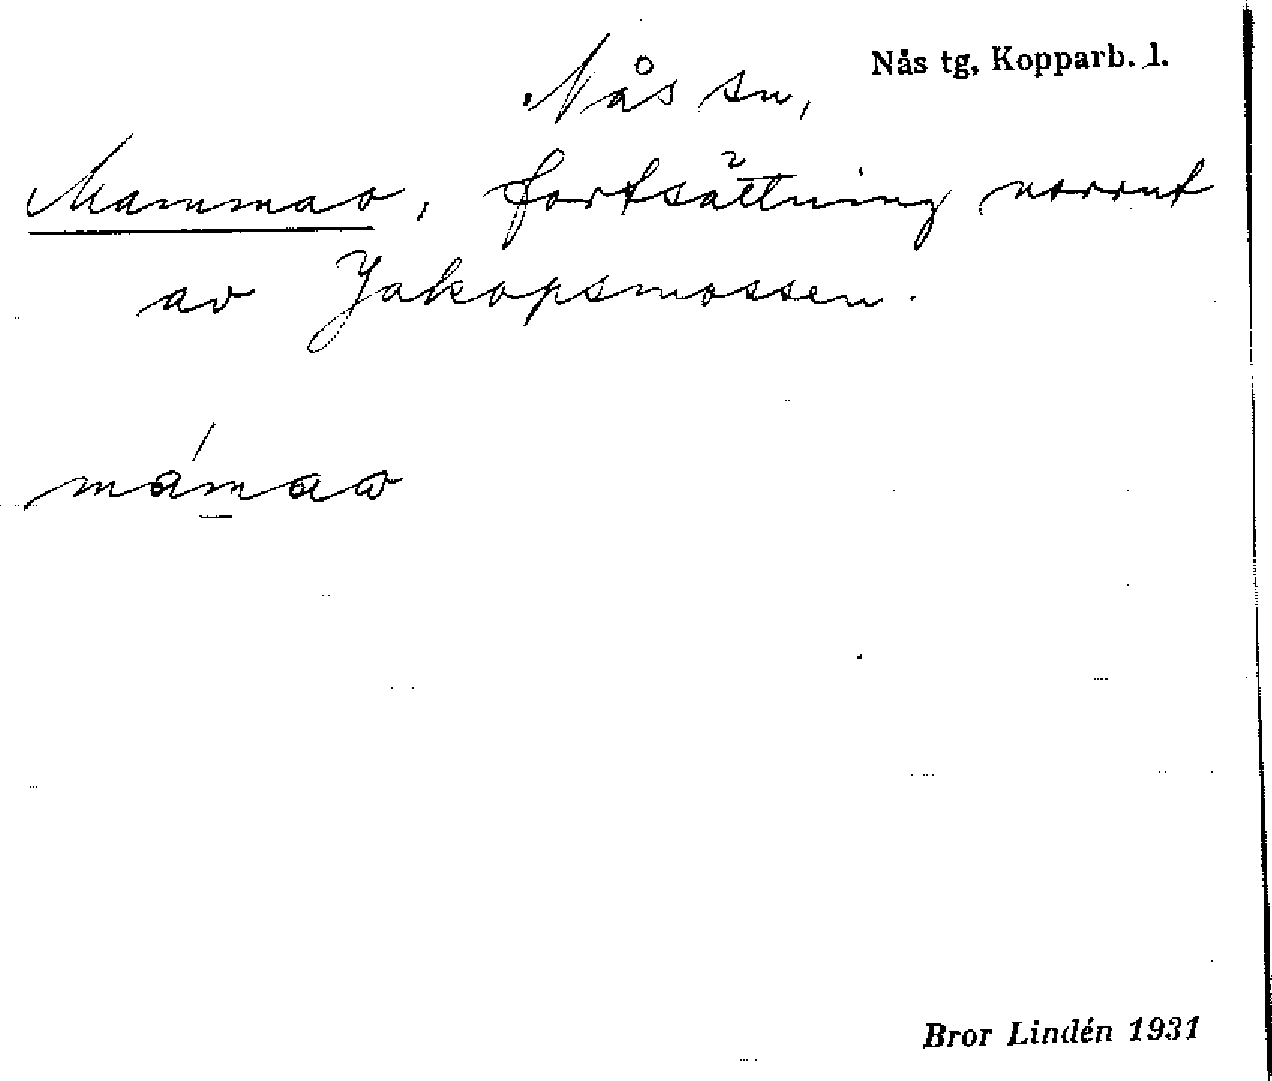 Nås tg, Kopparb. l.
Nås sn,
Mammao, fortsättning norrut
av Jakopsmossen.
Bror Lindén 1931